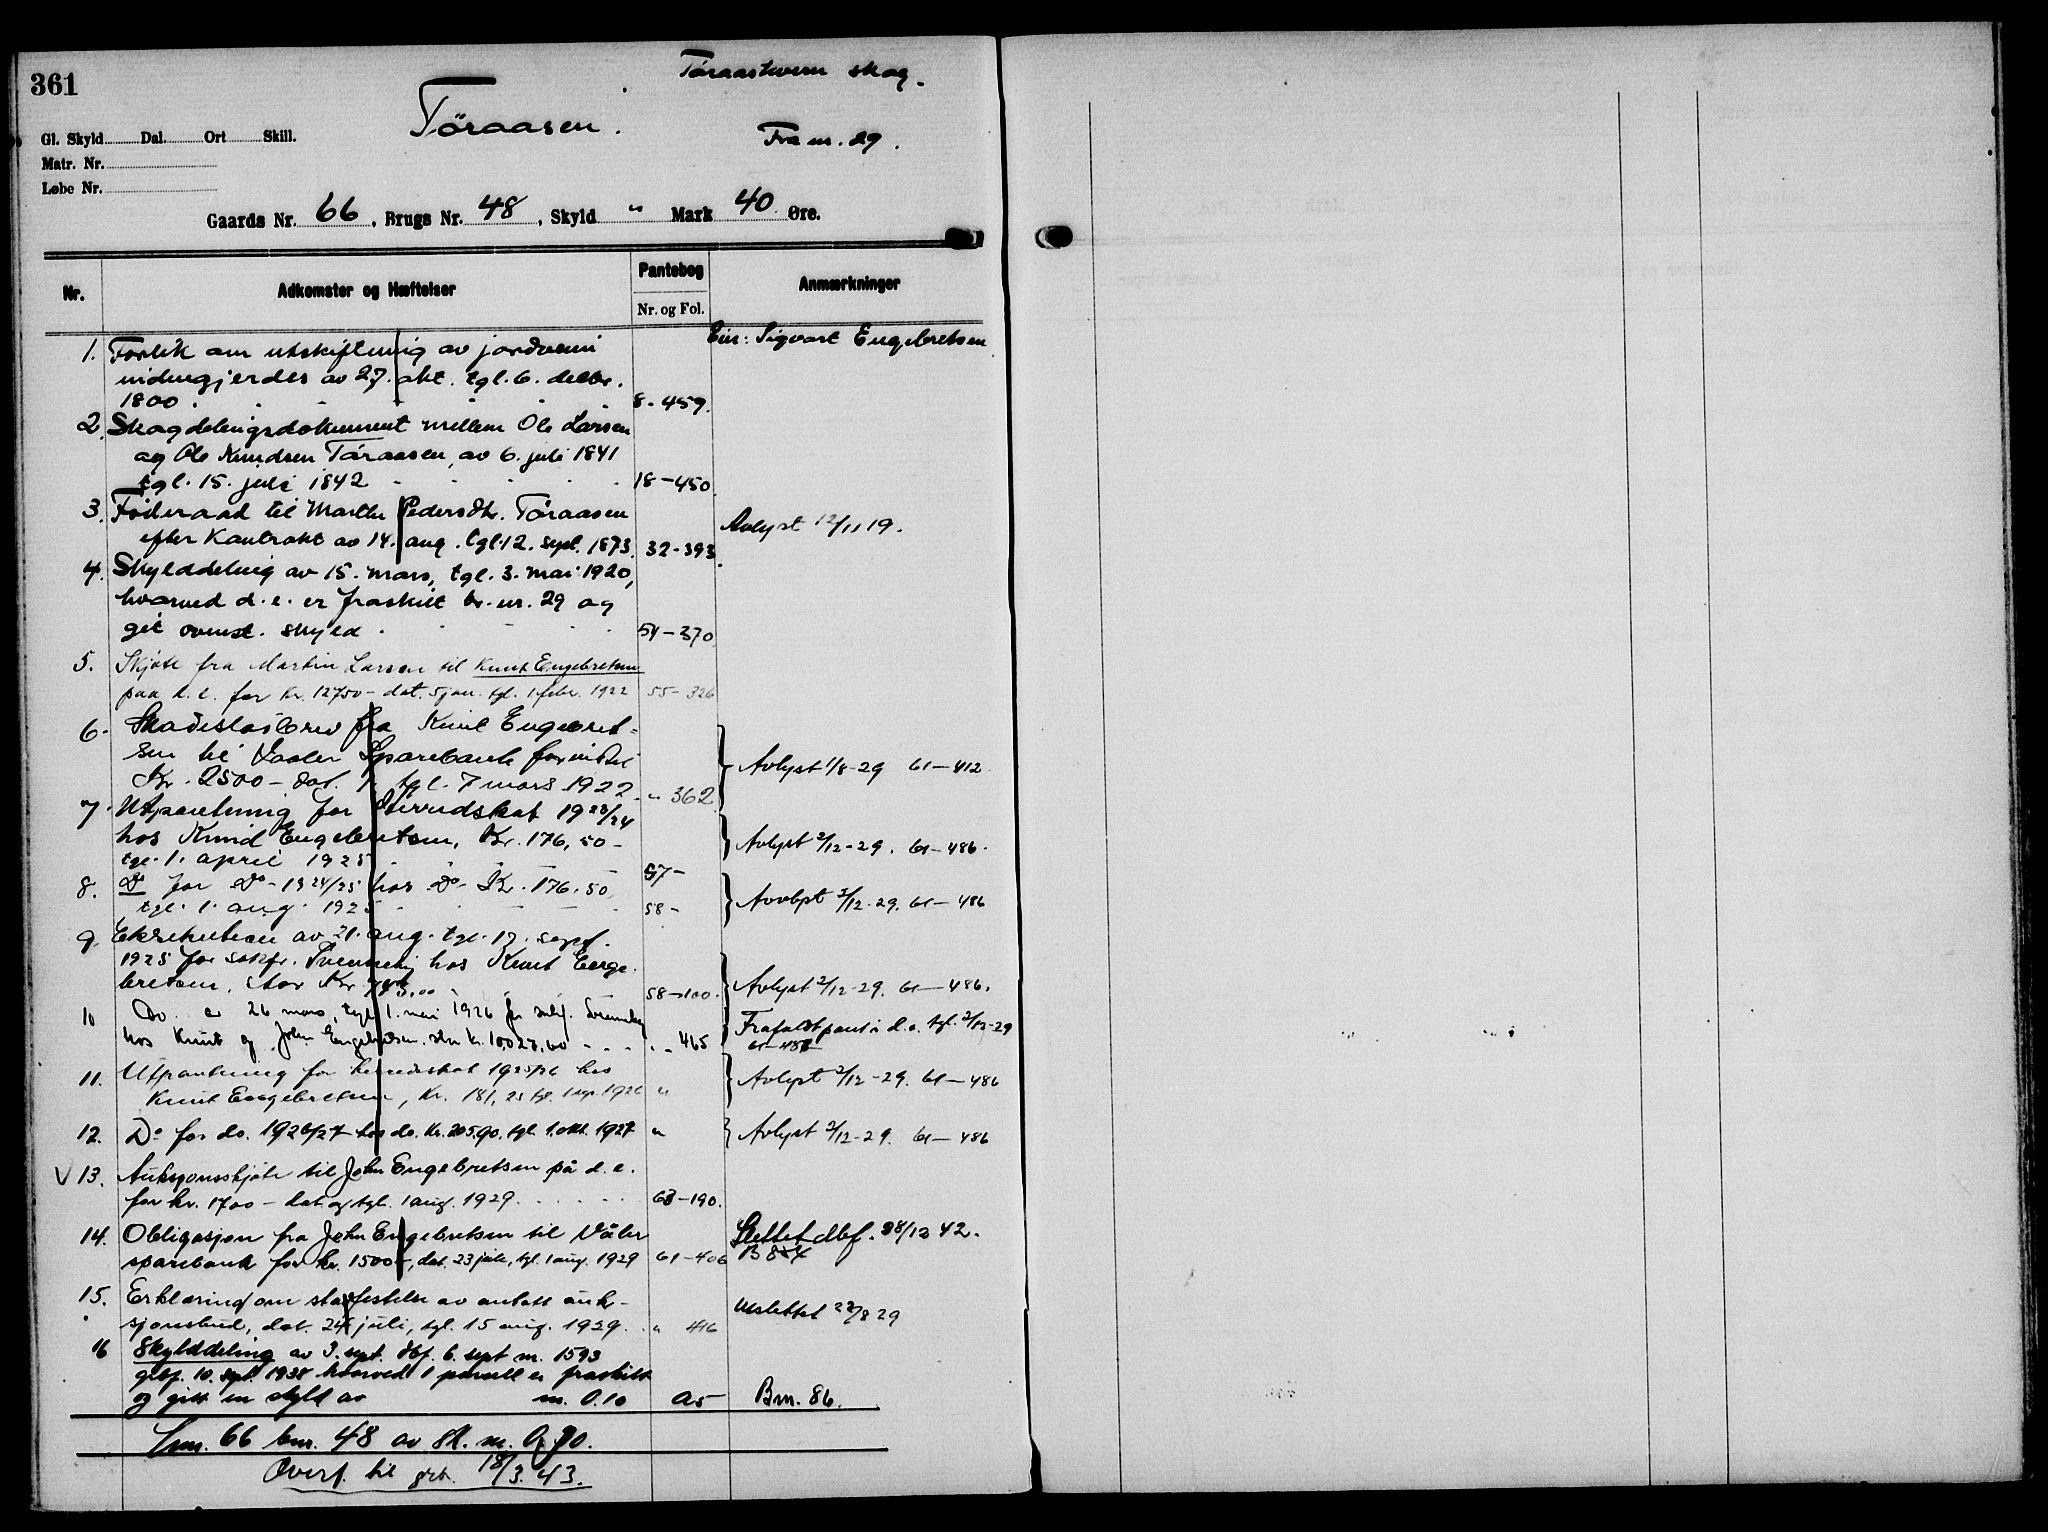 361
Tøraastuen skog.
Tøraasen.
Fra nr. 29.
Gl. Skyld Dal. Ort Skill.
Matr. Nr.
Løbe Nr.
Gaards Nr. 66, Brugs Nr. 48, Skyld " Mark 40 Øre.
Nr. Adkomster og Hæftelser Pantebog Anmærkninger
Nr. og Fol.
Eier: Sigvart Engebretsen
1. Forlik om utskiftning av jordveien
indengjerdes av 27. okt. tgl. 6. decbr.
1800 8-459.
2. Skogdelingsdokument mellem Ole Larsen
og Ole Knudsen Tøraasen, av 6. juli 1841
tgl. 15. juli 1842 18-450
3. Føderaad til Marthe Pedersdtr. Tøraasen Avlyst 12/11 19.
efter Kontrakt av 14. aug. tgl. 12. sept. 1873. 32-393
4. Skylddeling av 15. mars, tgl. 3. mai 1920,
hvorved d. e. er fraskilt br. nr. 29 og
git ovenst. skyld 54-370
5. Skjøte fra Martin Larsen til Knut Engebretsen
paa d. e. for kr. 12750- dat. 5 jan. tgl. 1 febr. 1922 55-326
6. Skadesløsbrev fra Knut Engebret-
sen til Vaaler Sparebank for indtil
Kr. 2500- dat. tgl. 7 mars 1922 " 362 Avlyst 1/8-29 61-412
7. Utpantning for Herredskat 1923/24
hos Knud Engebretsen, Kr. 176,50- Avlyst 2/12-29. 61-486.
tgl. 1. april 1925 57-
8. Do for Do- 1924/25 hos Do- Kr. 176.50, Avlyst 2/12-29. 61-486
tgl. 1. aug. 1925 58-
9. Eksekution av 21. aug. tgl. 17. sept.
1925 for sakfr. Svenneby hos Knut Enge-
bretsen, stor Kr. 00 58-100. Avlyst 2/12-29. 61-486.
10 Do. av 26 mars, tgl. 1. mai 1926 for sakf. Svenneby Frafaldt pant i d. e. tgl. 2/12-29
hos Knut og John Engebretsen. stor kr. 10,028,60 " 465 61-486
11. Utpantning for herredskat 1925/26 hos Avlyst 2/12-29. 61-486
Knut Engebretsen, kr. 181,25 tgl. 1 sep. 1926 "
12. Do for do. 1926/27 hos do. kr. 205.90. tgl. 1. okt. 1927 " Avlyst 2/12-29. 61-486
V 13. Auksjonsskjøte til John Engebretsen på d. e.
for kr. 1700- dat. og tgl. 1 aug. 1929 63-190.
14. Obligasjon fra John Engebretsen til Våler Slettet dbf. 28/12 42.
sparebank for kr. 1500-, dat. 23 juli, tgl. 1 aug. 1929 61-406 B 854
15. Erklæring om stadfestelse av antatt auk-
sjonsbud, dat. 24 juli, tgl. 15 aug. 1929. " 416 Utslettet 22/8 29
16 Skylddeling av 3. sept. dbf. 6. sept nr. 1593
gebf. 10. sept. 1938 hvorved 1 parsell er fraskilt
og gitt en skyld av m. 0.10 A5 Brn. 86.
Gnr. 66 bnr. 48 av sk. m. 0,30.
Overf. til grb. 18/3.43.